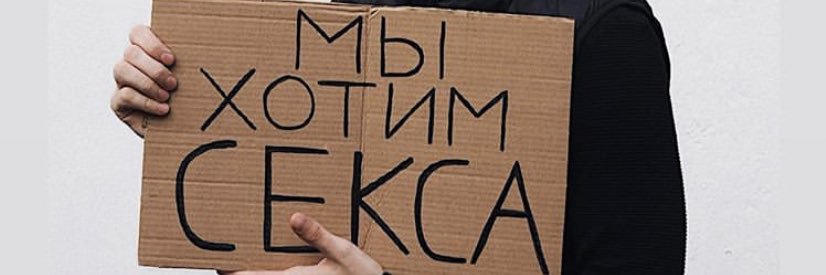 МЫ
ХОТИМ
СЕКСА